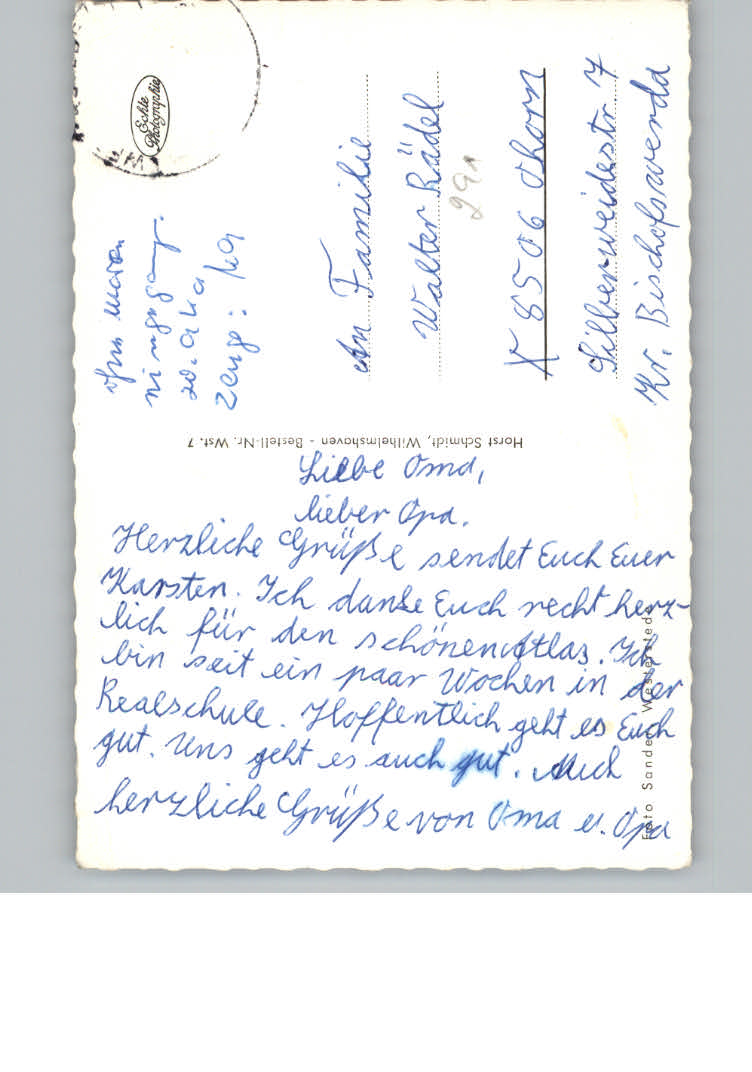 Liebe Oma,
lieber Opa.
Herzliche Grüße sendet Euch Euer
Karsten. Ich danke Euch recht herz-
lich für den schönen Atlas. Ich
bin seit ein paar Wochen in der
Realschule. Hoffentlich geht es Euch
gut. Uns geht es auch gut. Auch
herzliche Grüße von Oma u. Opa
An Familie
Walter Rädel
291
X 8506 Thorn
Silberweidestr 7
Kr. Bischofswerda
Echte
Photographie
Horst Schmidt, Wilhelmshaven - Bestell-Nr. Wst. 7
Foto Sander, Westerstede